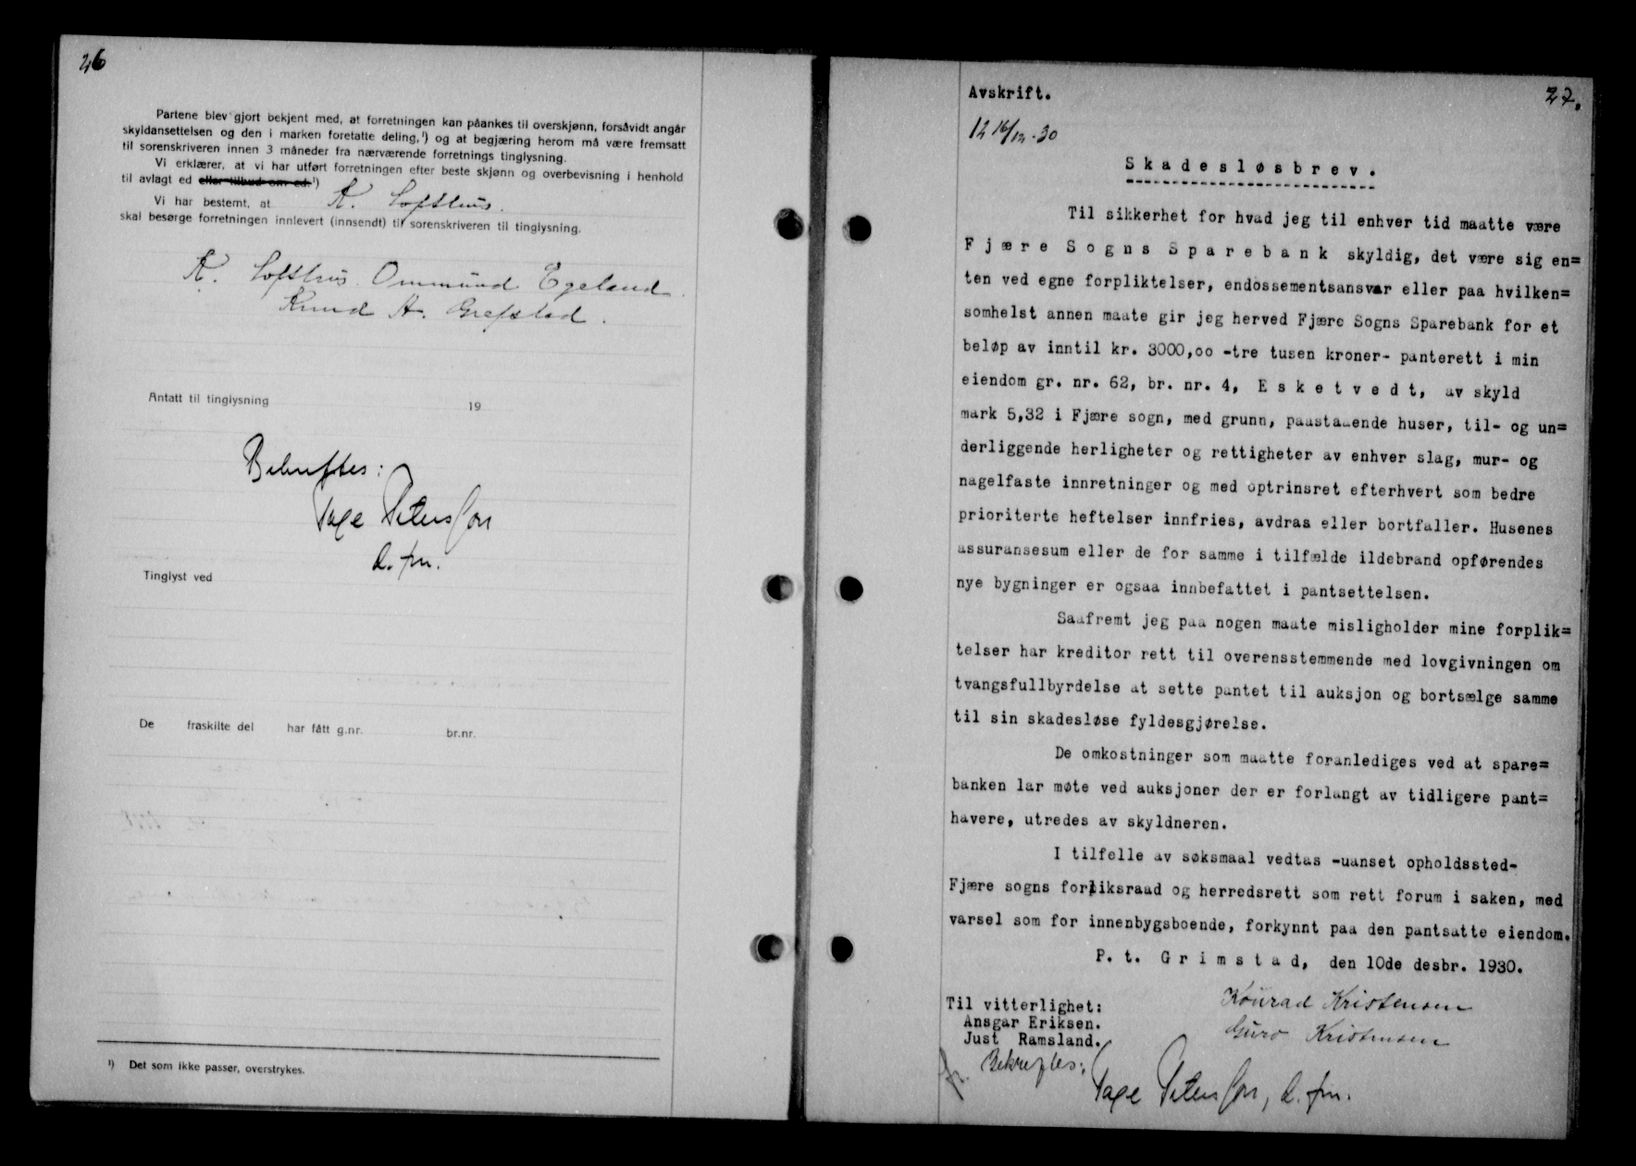 26
Partene blev gjort bekjent med, at forretningen kan påankes til overskjønn, forsåvidt angår
skyldansettelsen og den i marken foretatte deling,¹) og at begjæring herom må være fremsatt
til sorenskriveren innen 3 måneder fra nærværende forretnings tinglysning.
Vi erklærer, at vi har utført forretningen efter beste skjønn og overbevisning i henhold
til avlagt ed eller tilbud om ed.¹)
Vi har bestemt, at K. Lofthus.
skal besørge forretningen innlevert (innsendt) til sorenskriveren til tinglysning.
K. Lofthus. Ommund Egeland.
Knud A. Grefstad.
Antatt til tinglysning 19
Bekreftes:
Tage Petersson
d. fm.
Tinglyst ved
De fraskilte del har fått g.nr. br.nr.
¹) Det som ikke passer, overstrykes.
27.
Avskrift.
12 16/12-30
Skadesløsbrev.
Til sikkerhet for hvad jeg til enhver tid maatte være
Fjære Sogns Sparebank skyldig, det være sig en=
ten ved egne forpliktelser, endossementsansvar eller paa hvilken=
somhelst annen maate gir jeg herved Fjære Sogns Sparebank for et
beløp av inntil kr. 3000,oo -tre tusen kroner- panterett i min
eiendom gr. nr. 62, br. nr. 4, Esketvedt, av skyld
mark 5,32 i Fjære sogn, med grunn, paastaaende huser, til- og un=
derliggende herligheter og rettigheter av enhver slag, mur- og
nagelfaste innretninger og med optrinsret efterhvert som bedre
prioriterte heftelser innfries, avdras eller bortfaller. Husenes
assuransesum eller de for samme i tilfælde ildebrand opførendes
nye bygninger er ogsaa innbefattet i pantsettelsen.
Saafremt jeg paa nogen maate misligholder mine forplik=
telser har kreditor rett til overensstemmende med lovgivningen om
tvangsfullbyrdelse at sette pantet til auksjon og bortsælge samme
til sin skadesløse fyldesgjørelse.
De omkostninger som maatte foranlediges ved at spare=
banken lar møte ved auksjoner der er forlangt av tidligere pant=
havere, utredes av skyldneren.
I tilfelle av søksmaal vedtas -uanset opholdssted-
Fjære sogns forliksraad og herredsrett som rett forum i saken, med
varsel som for innenbygsboende, forkynnt paa den pantsatte eiendom.
P. t. Grimstad, den 10de desbr. 1930.
Til vitterlighet:
Ansgar Eriksen.
Just Ramsland.
Konrad Kristensen
Guro Kristensen
Bekreftes:
Tage Petersson, d. fm.